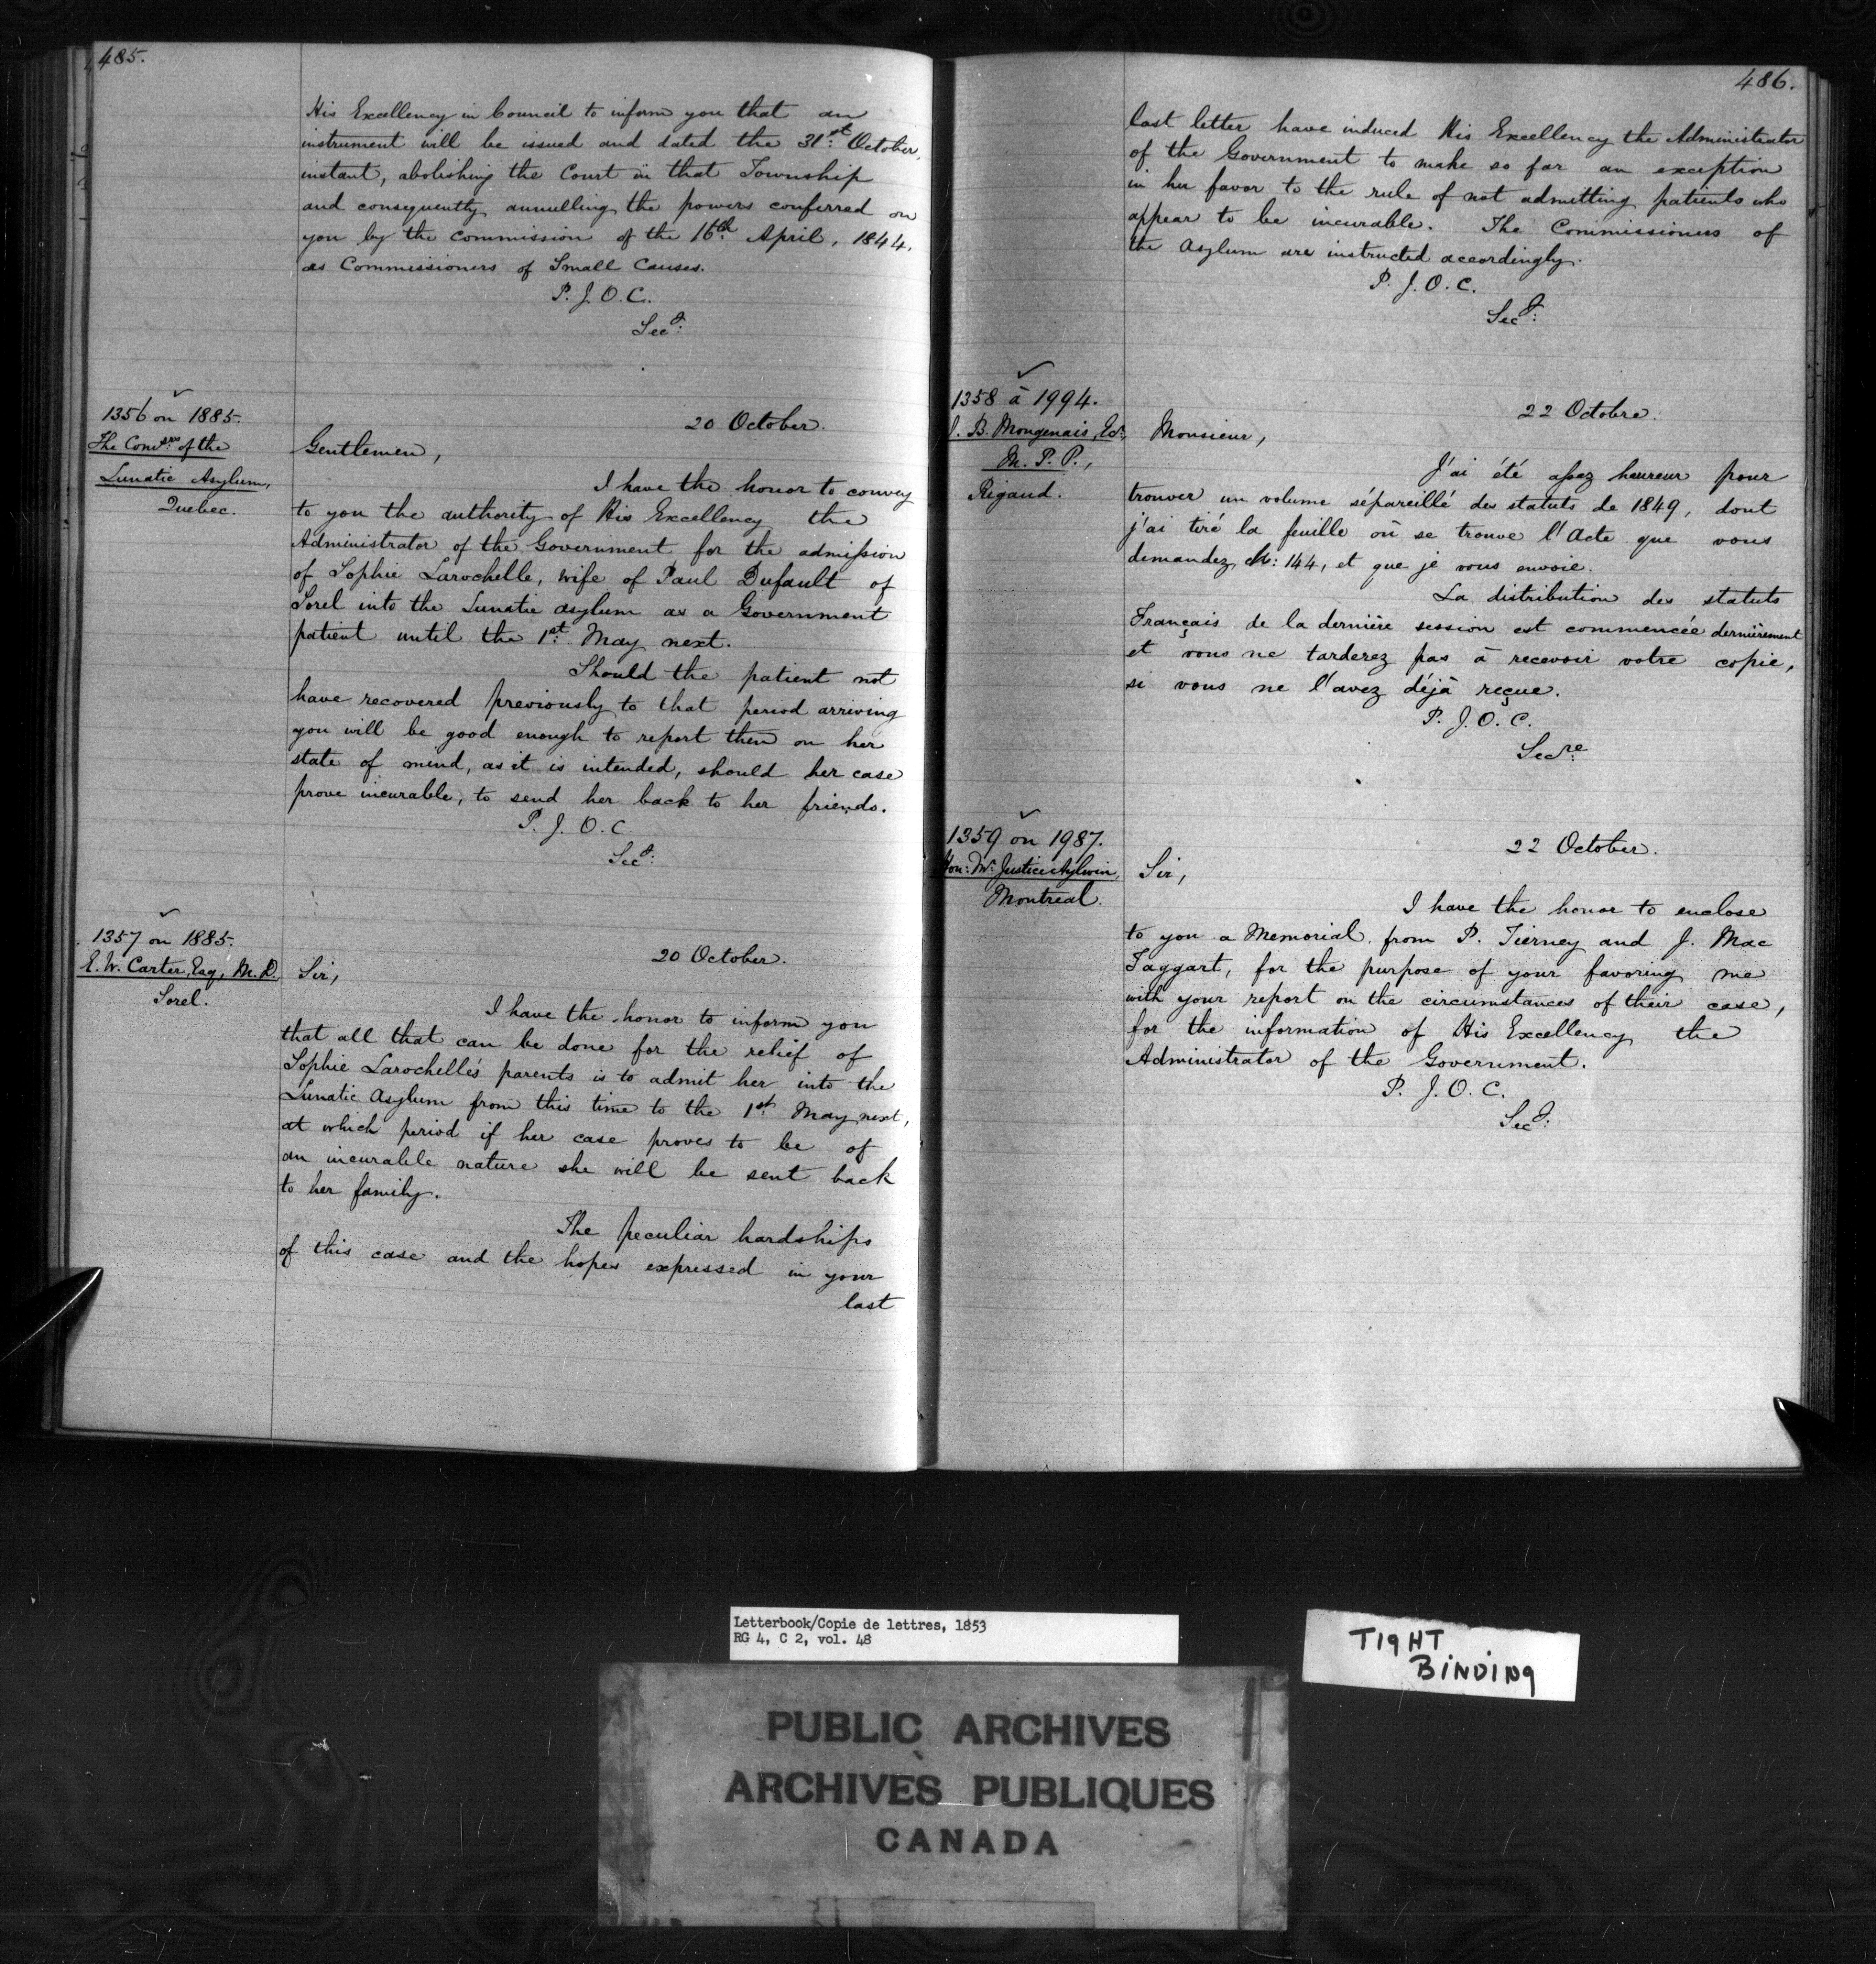 485.
His Excellency in Council to inform you that an
instrument will be issued and dated the 31st October,
instant, abolishing the Court in that Township
and consequently annulling the powers conferred on
you by the commission of the 16th April, 1844,
as Commissioners of Small Causes.
P. J. O. C.
Secy:
1356 on 1885.
The Comsrs of the
Lunatic Asylum,
Quebec.
20 October.
Gentlemen,
I have the honor to convey
to you the authority of His Excellency the
Administrator of the Government for the admission
of Sophie Larochelle, wife of Paul Dufault of
Sorel into the Lunatic Asylum as a Government
patient until the 1st May next.
Should the patient not
have recovered previously to that period arriving
you will be good enough to report then on her
state of mind, as it is intended, should her case
prove incurable, to send her back to her friends.
P. J. O. C.
Secy:
1357 on 1885.
E. W. Carter, Esq, M. D.
Sorel.
20 October.
Sir,
I have the honor to inform you
that all that can be done for the relief of
Sophie Larochelle's parents is to admit her into the
Lunatic Asylum from this time to the 1st May next,
at which period if her case proves to be of
an incurable nature she will be sent back
to her family.
The peculiar hardships
of this case and the hopes expressed in your
last
486.
last letter have induced His Excellency the Administrator
of the Government to make so far an exception
in her favor to the rule of not admitting patients who
appear to be incurable. The Commissioners of
the Asylum are instructed accordingly.
P. J. O. C.
Secy:
1358 à 1994.
J. B. Mongenais, Ecr,
M. P. P.,
Rigaud.
22 Octobre.
Monsieur,
J'ai été assez heureux pour
trouver un volume sépareillé des statuts de 1849, dont
j'ai tiré la feuille où se trouve l'Acte que vous
demandez, Ch: 144, et que je vous envoie.
La distribution des statuts
Français de la dernière session est commencée dernièrement
et vous ne tarderez pas à recevoir votre copie,
si vous ne l'avez déjà reçue.
P. J. O. C.
Secre
1359 on 1987.
Hon: Mr Justice Aylwin,
Montreal.
22 October.
Sir,
I have the honor to enclose
to you a Memorial from P. Tierney and J. Mac
Taggart, for the purpose of your favoring me
with your report on the circumstances of their case,
for the information of His Excellency the
Administrator of the Government.
P. J. O. C.
Secy:
Letterbook/Copie de lettres, 1853
RG 4, C 2, vol. 48
TIGHT
BINDING
PUBLIC ARCHIVES
ARCHIVES PUBLIQUES
CANADA